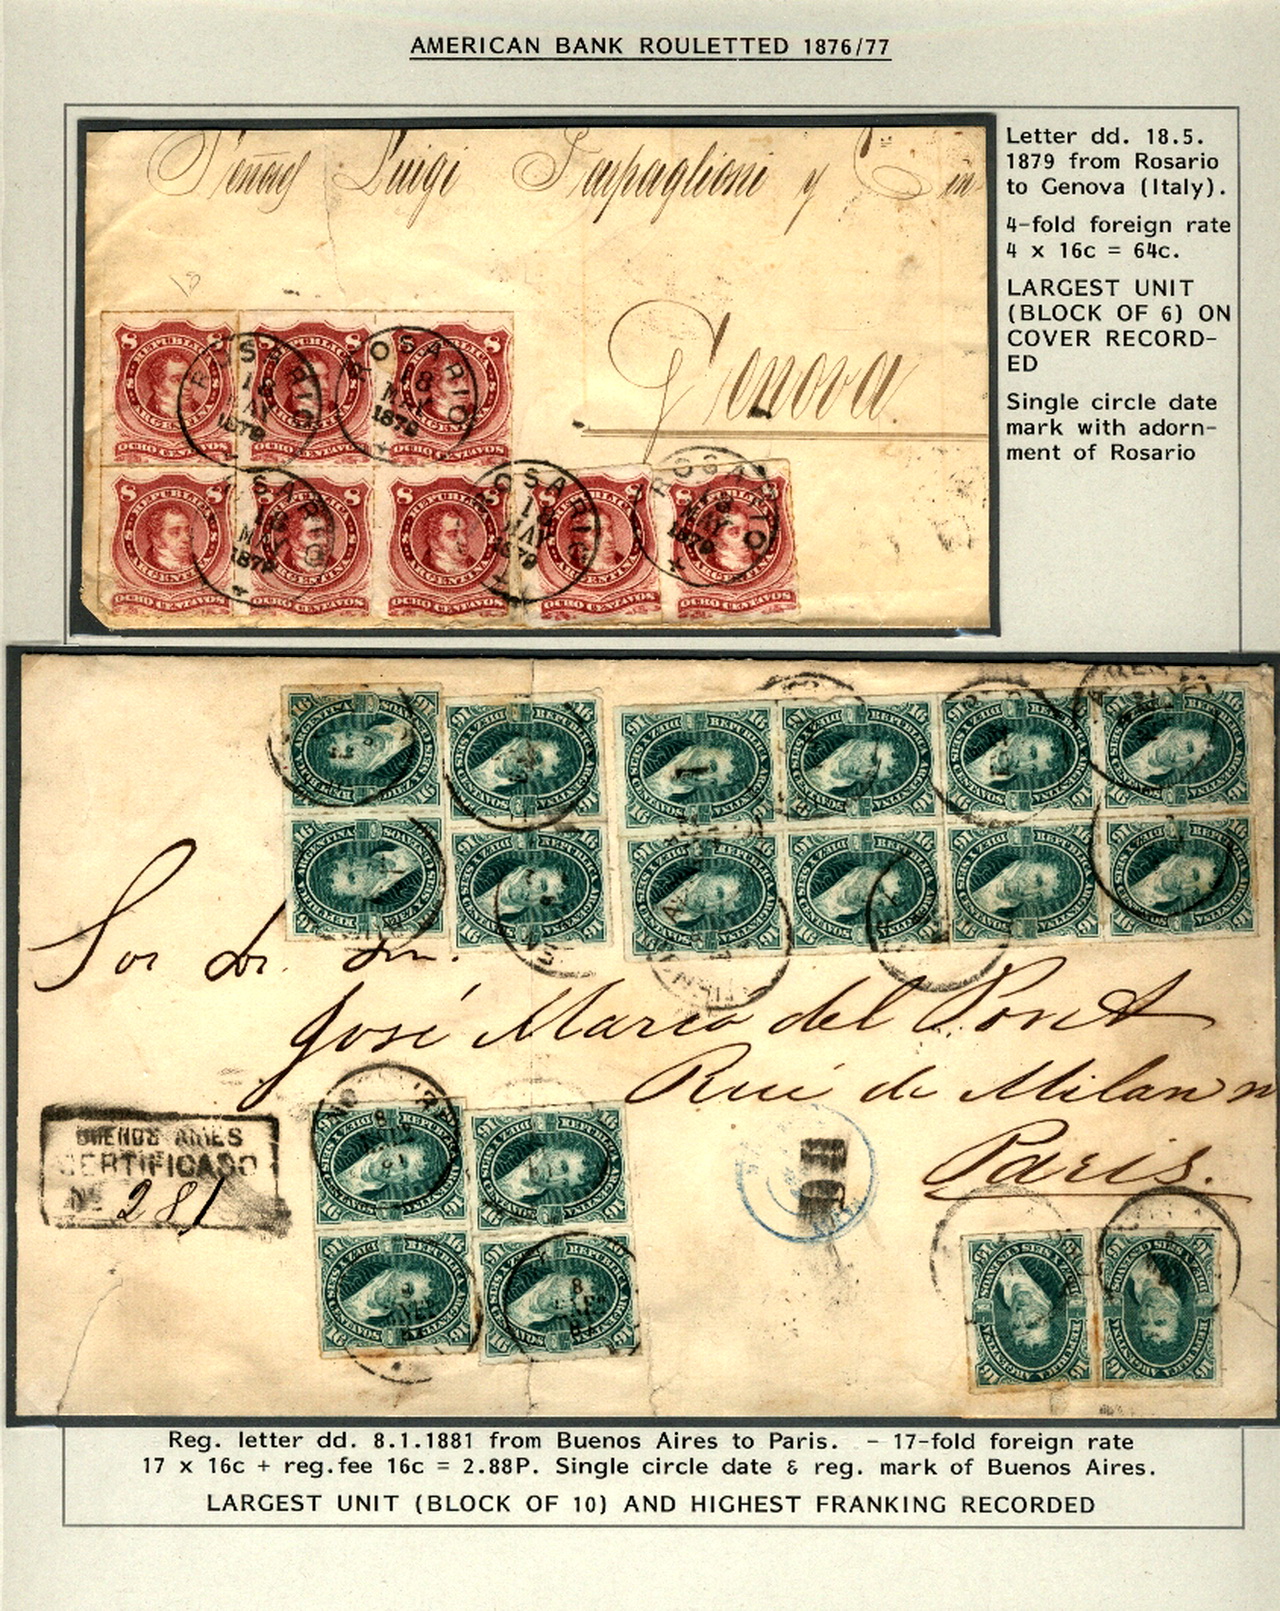 AMERICAN BANK ROULETTED 1876/77
Letter dd. 18.5.
1879 from Rosario
to Genova (Italy).
4-fold foreign rate
4 x 16c = 64c.
LARGEST UNIT
(BLOCK OF 6) ON
COVER RECORD-
ED
Single circle date
mark with adorn-
ment of Rosario
Luigi Parpaglioni y
Genova
REPUBLICA ARGENTINA
8 8
OCHO CENTAVOS
ROSARIO
18
MAY
1879
REPUBLICA ARGENTINA
DIEZ Y SEIS CENTAVOS
16 16
Sor Dr. Dn.
José Marco del Pont
Rue de Milan n
Paris.
BUENOS AIRES
CERTIFICADO
No 281
Reg. letter dd. 8.1.1881 from Buenos Aires to Paris. - 17-fold foreign rate
17 x 16c + reg.fee 16c = 2.88P. Single circle date & reg. mark of Buenos Aires.
LARGEST UNIT (BLOCK OF 10) AND HIGHEST FRANKING RECORDED